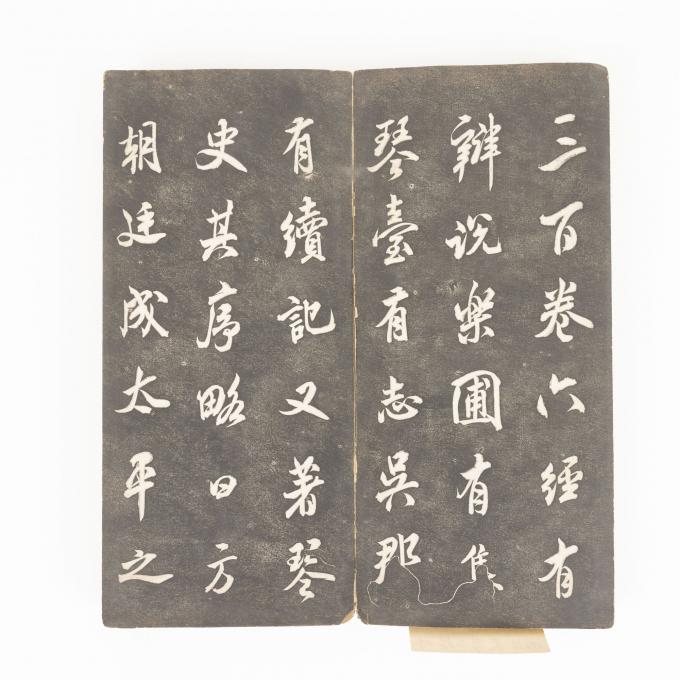 三百卷六經有
辯說樂圃有集
琴臺有志吳郡
有續記又著琴
史其序略曰方
朝廷成太平之